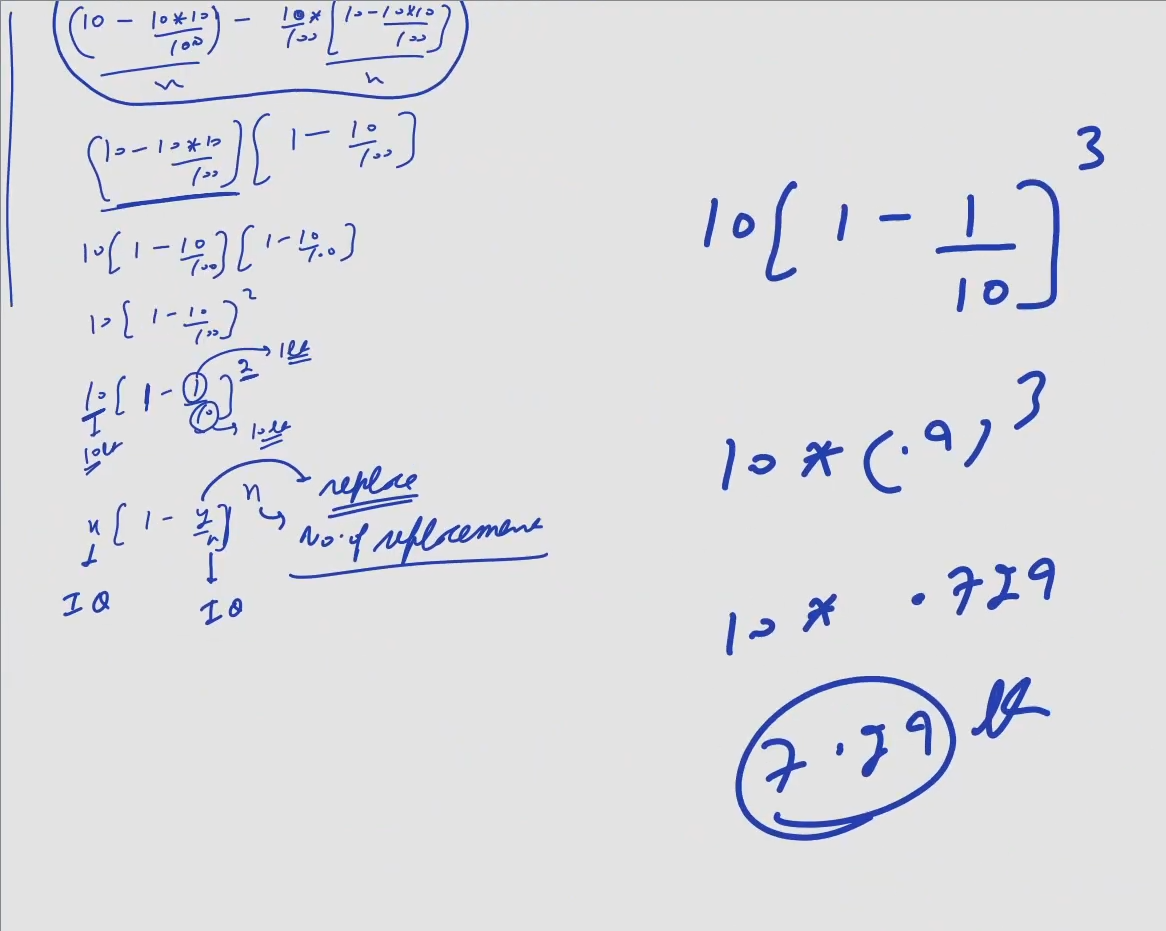 (10 - 10*10/100) - 10*/100 [10-10*10/100]
n n
[10-10*10/100] [1 - 10/100]
10[1 - 10/100] [1-10/100]
10[1-10/100]²
10[1 - 1/10]² 1lt
10lt
10lt
x[1 - y/x]ⁿ replace
No. of replacement
IQ IQ
10[1 - 1/10]³
10 * (.9)³
10 * .729
7.29 lt